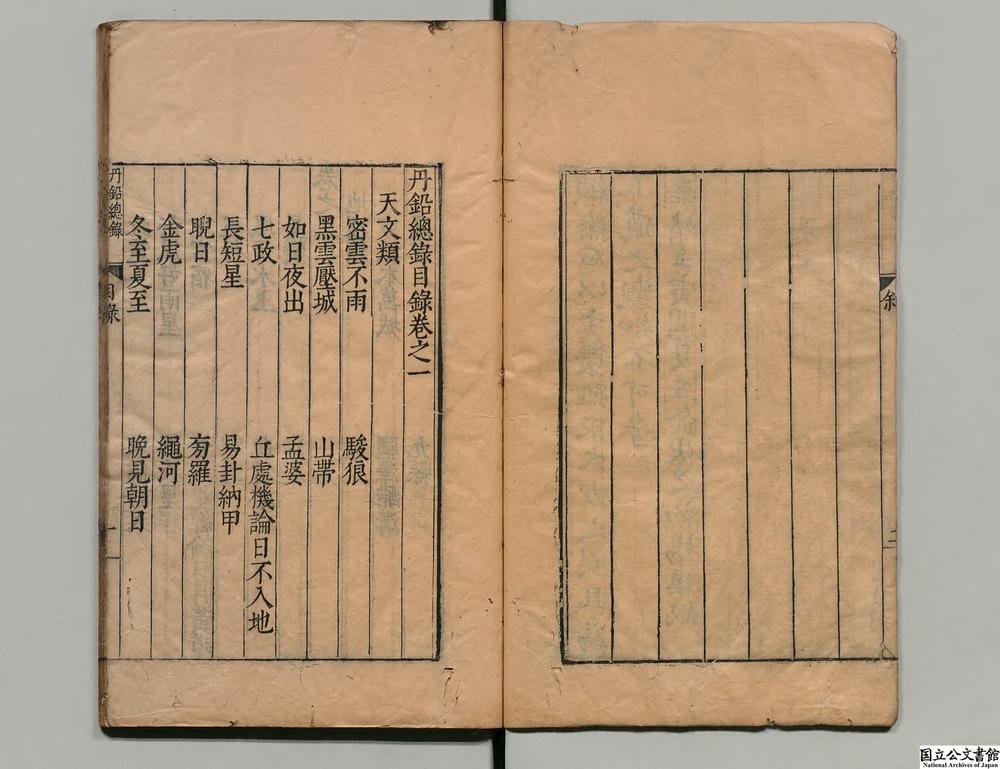 敘
三
丹鉛總錄目錄卷之一
天文類
密雲不雨　駿狼
黑雲壓城　山帶
如日夜出　孟婆
七政　丘處機論日不入地
長短星　易卦納甲
睨日　旁羅
金虎　繩河
冬至夏至　晚見朝日
丹鉛總錄
目錄
一
国立公文書館
National Archives of Japan